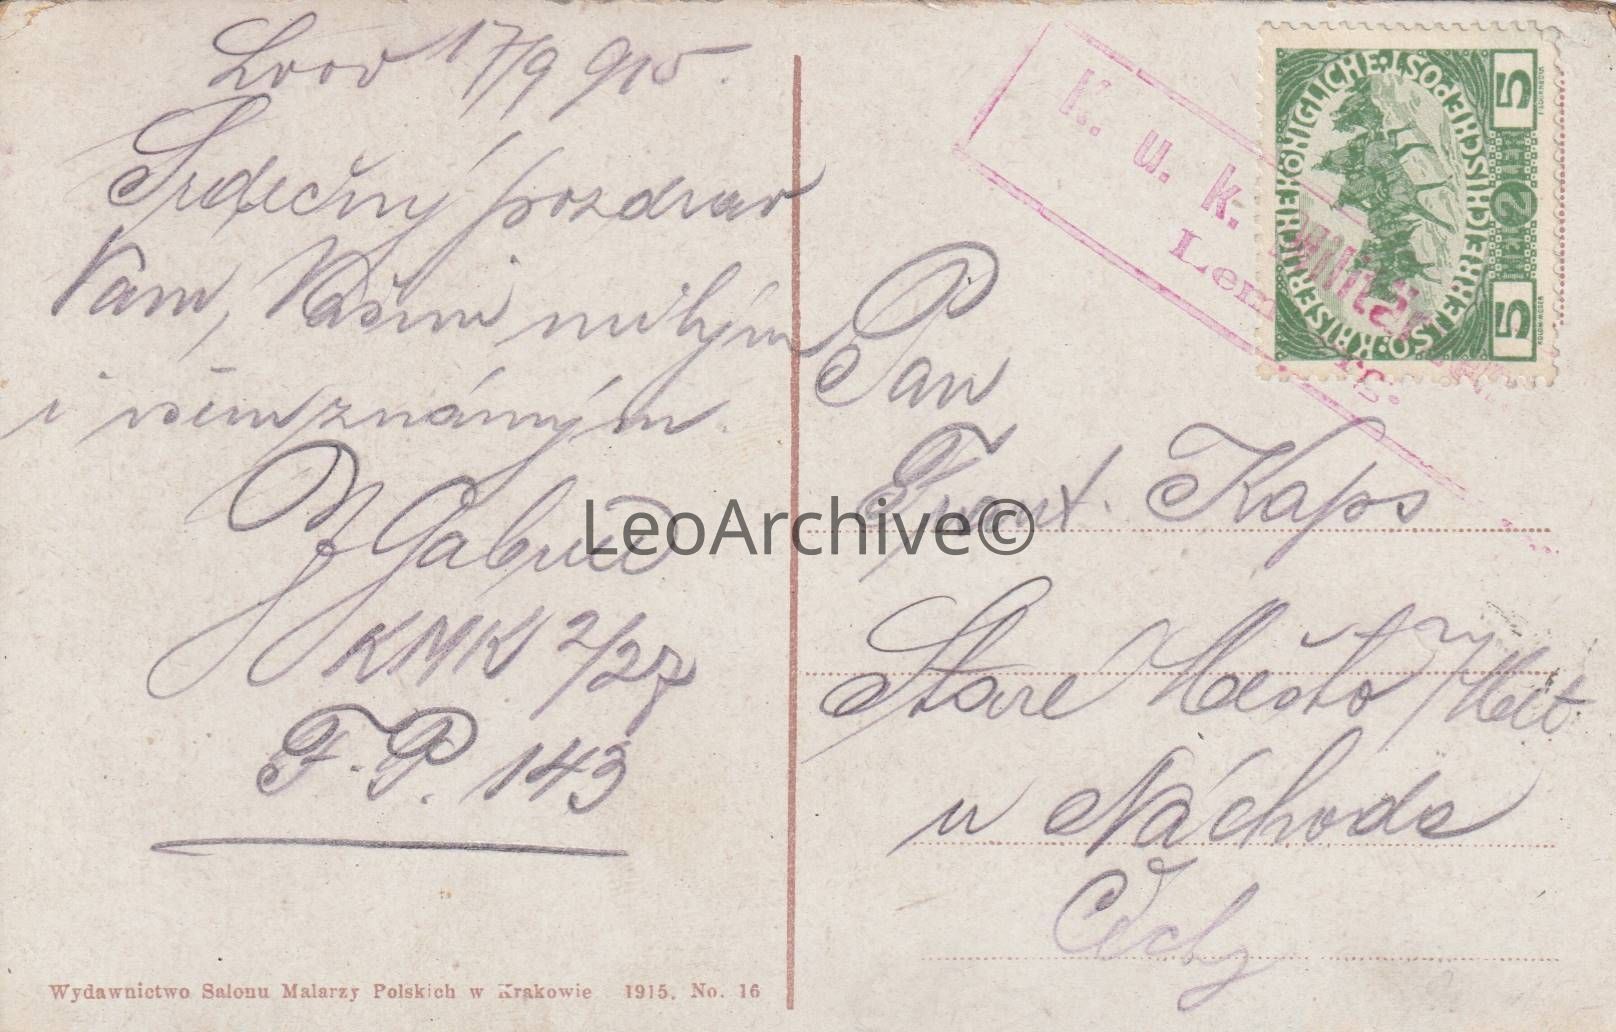 Lvov 17/9 915.
Srdečný pozdrav
Vám, Vašim milým
i všem známým.
Gabriel
KMK 2/27
F. P. 143
Wydawnictwo Salonu Malarzy Polskich w Krakowie 1915. No. 16
K. u. k. Militär
Lem
rg.
KAISERLICHE KÖNIGLICHE ÖSTERREICHISCHE POST
5 HELLER 2 5
Pan
Frant. Kaps
Staré Město / Met.
u Náchoda
Čechy
LeoArchive©